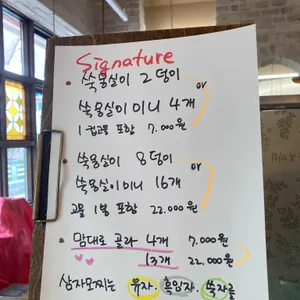 Signature
• 쑥몽실이 2덩이
or
쑥몽실이미니 4개
1컵고물 포함 7.000원
• 쑥몽실이 8덩이
or
쑥몽실이미니 16개
고물 1봉 포함 22.000원
• 맘대로 골라 4개 7.000원
13개 22.000원
유자, 흑임자, 쑥자르